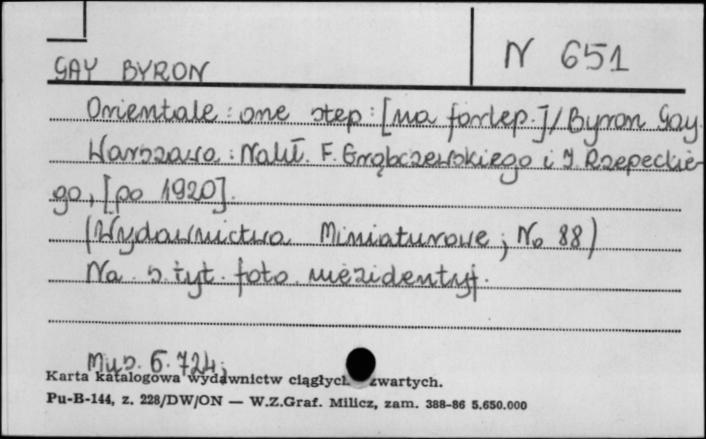 N 651
GAY BYRON
Orientale : one step : [na fortep.] / Byron Gay.
Warszawa : Nakł. F. Grąbczewskiego i J. Rzepeckie-
go, [po 1920].
(Wydawnictwo Miniaturowe ; No 88)
Na s. tyt. foto. niezidentyf.
Mus. 6.724;
Karta katalogowa wydawnictw ciągłych zwartych.
Pu-B-144, z. 228/DW/ON — W.Z.Graf. Milicz, zam. 388-86 5.650.000